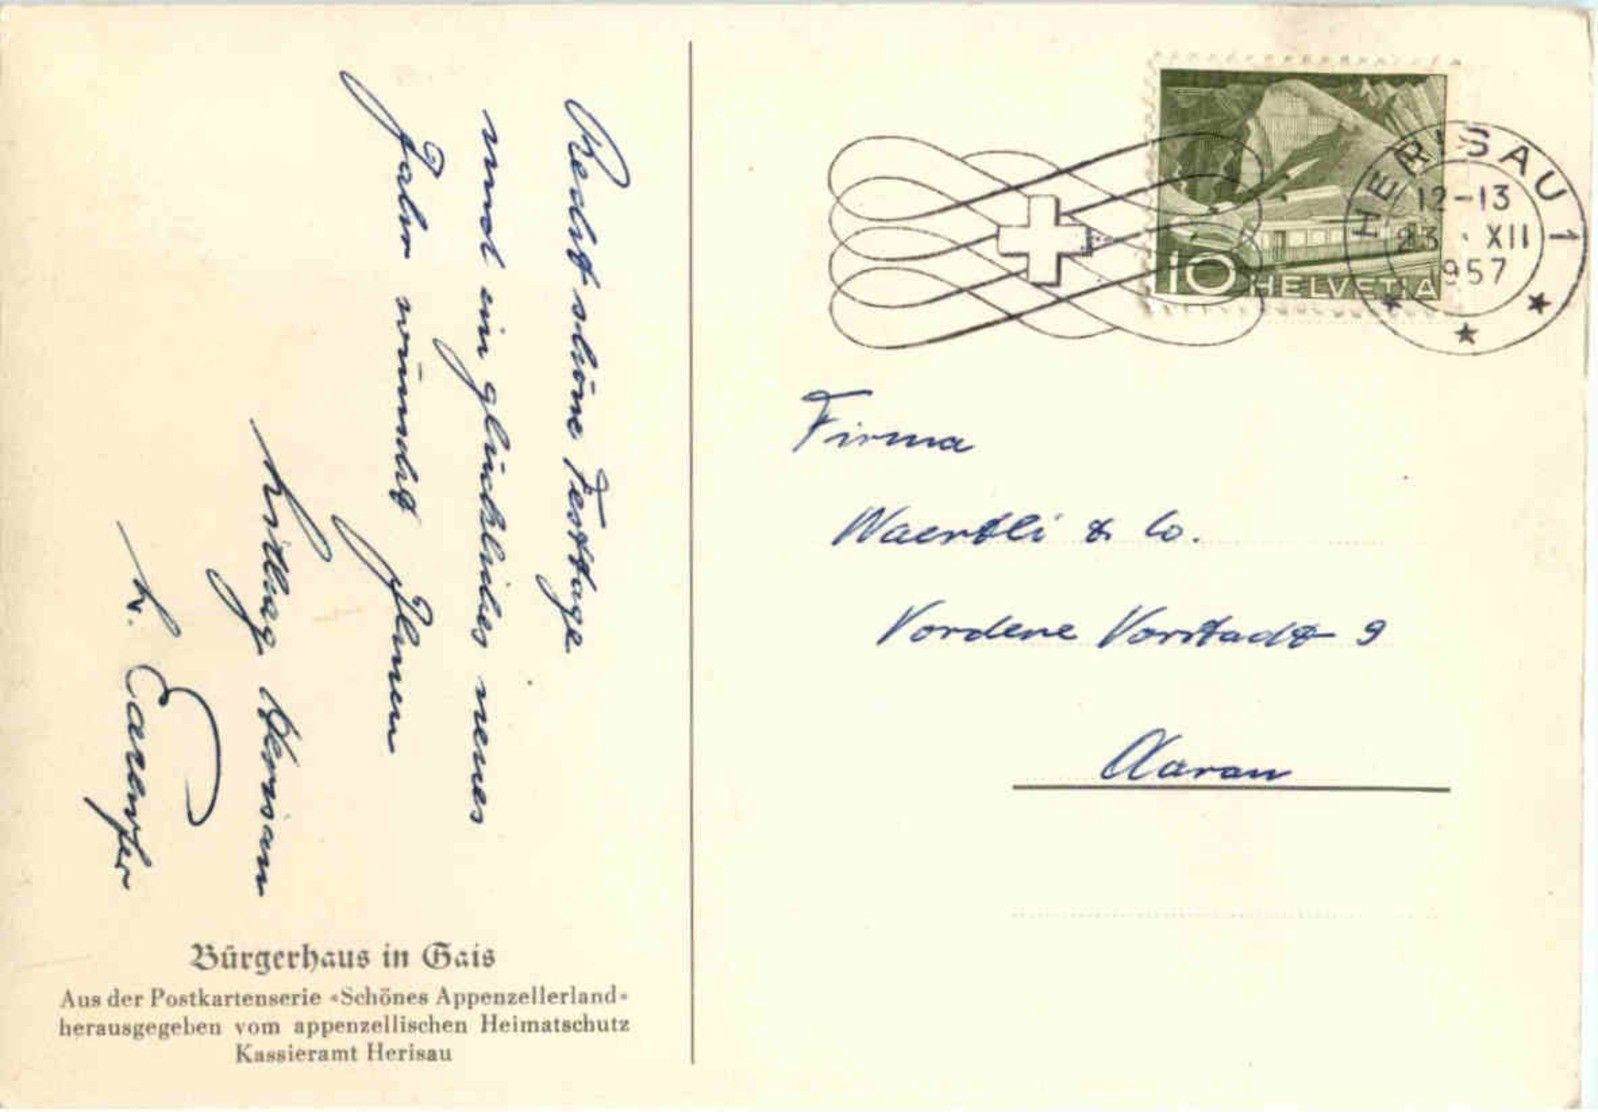 Recht schöne Festtage
und ein glückliches neues
Jahr wünscht Ihnen
Herisau
Bürgerhaus in Gais
Aus der Postkartenserie «Schönes Appenzellerland»
herausgegeben vom appenzellischen Heimatschutz
Kassieramt Herisau
10 HELVETIA
HERISAU 1
12-13
23. XII
1957
Firma
Waertli & Co.
Vordere Vorstadt 9
Aarau